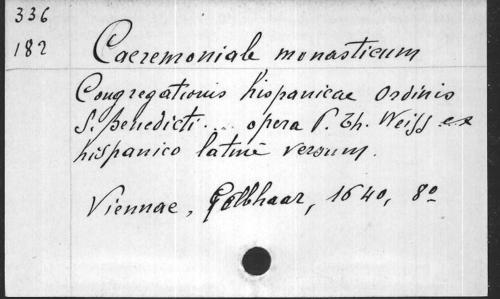 336
182
Caeremoniale monasticum
Congregationis hispanicae Ordinis
S. Benedicti... opera P. Th. Weiss ex
hispanico latine versum.
Viennae, Gelbhaar, 1640, 8o